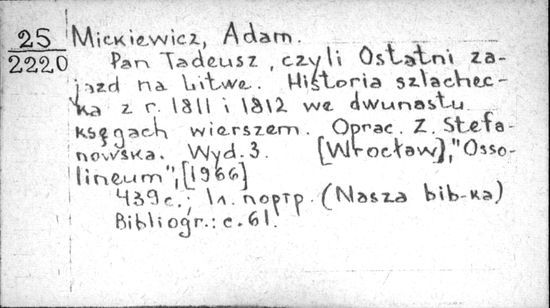 25
2220
Mickiewicz, Adam.
Pan Tadeusz, czyli Ostatni za-
jazd na Litwe. Historia szlachec-
ka z r. 1811 i 1812 we dwunastu
księgach wierszem. Oprac. Z. Stefa-
nowska. Wyd. 3. [Wrocław], "Osso-
lineum", [1966]
439 с.; 1 л. портр. (Nasza bib-ka)
Bibliogr.: с. 61.